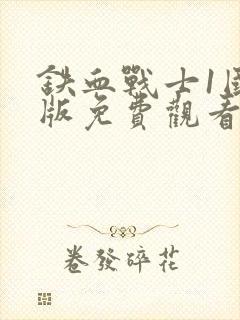 鉄血戰士1國
版免費觀看
卷發碎花